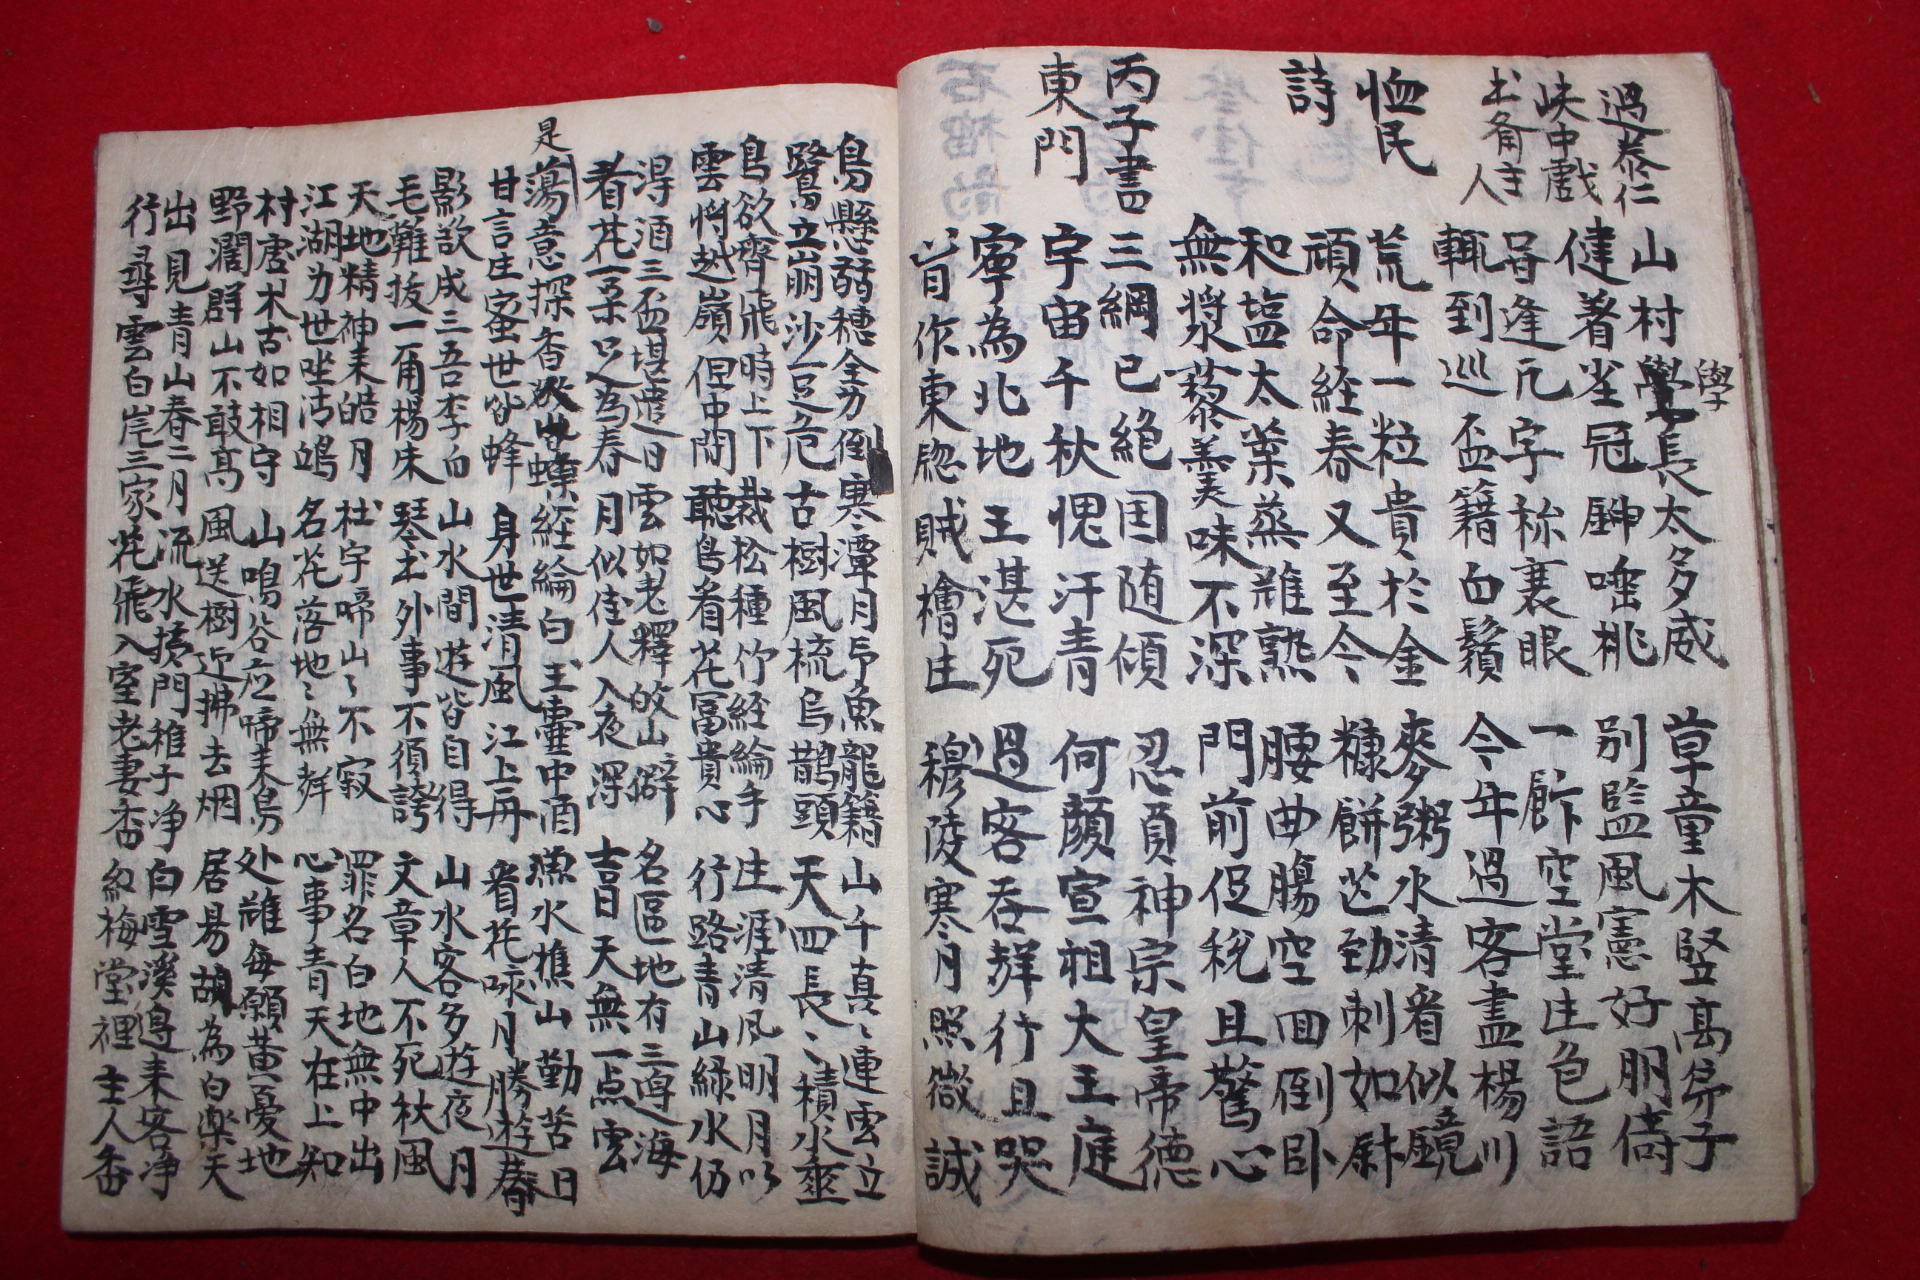 過泰仁
山村學長太多威 草童木竪髙笄子
學
峡中戱
健着坐冠唾桃 别監風憲好朋儔
土 主人
尋逢元字称裏眼 一廳空堂庄色語
輒到巡盃籍白鬚 今年過客盡楊川
恤民詩
荒年一粒貴於金 麥粥水清看似鏡
頑命経春又至今 糠餅芒勁刺如
和塩太葉蒸雖熟 腰曲腸空回倒卧
無漿藜羹味不深 門前促稅且驚心
丙子書東門
三綱已絶囯随傾 忍負神宗皇帝德
宇宙千秋愧汗青 何顔宣祖大王庭
寧為北地王湛死 過客吞聲行且哭
肯作東牕賊檜庄 穆陵寒月照微誠
鳥懸弱穗全身倒 寒潭月吊魚龍籍 山千真〻連雲立
鷺立崩沙一足危 古樹風梳烏鵲頭 天四長〻積水垂
鳥欲齊飛時上下 栽松種竹経綸手 庄涯清風明月以
雲將越嶺但中間 聽鳥看花冨貴心 行路青山緑水仍
淂酒三盃堪遣日 雲如老釋的山僻 名區地有三邊海
看花一朶足為春 月似佳人入夜深 吉日天無一点雲
是
蕩意探香 蝶 経綸白玉壷中酒 漁水樵山勤苦日
甘言庄蜜世皆蜂 身世清風江上舟 看花咏月勝遊春
影歓成三吾李白 山水間遊皆自得 山水客多遊夜月
毛難拔一 楊朱 琴书外事不須誇 文章人不死秋風
天地精神来皓月 杜宇啼山〻不寂 罪名白地無中出
江湖 世坐沽 名花落地〻無聲 心事青天在上知
村虚木古如相守 山鳴谷应啼来鳥 处雖每願黄憂地
野濶群山不敢髙 風送樹近拂去烟 居易胡為白楽天
出見青山春二月 流水 門稚子净 白雪溪邊来客净
行尋雲白岸三家 花飛入室老妻香 紅梅堂裡主人香